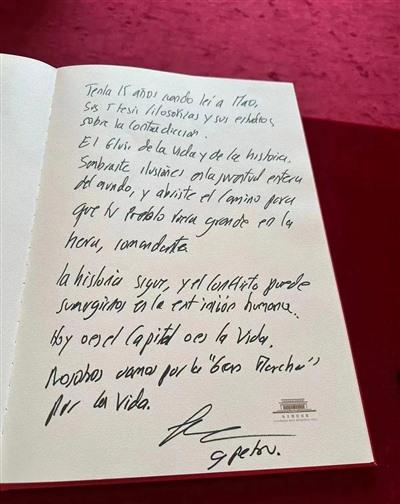 Tenía 15 años cuando leí a Mao,
Sus 5 tesis filosóficas y sus estudios
sobre la contradicción.
El fluir de la vida y de la historia.
Sembraste ilusiones en la juventud entera
del mundo, y abriste el camino para
que tu pueblo fuera grande en la
tierra, comandante.
La historia sigue, y el conflicto puede
sumergirnos en la extinción humana.
Hoy o es el Capital o es la Vida.
Nosotros vamos por la "Gran Marcha"
por la vida.
G Petro.